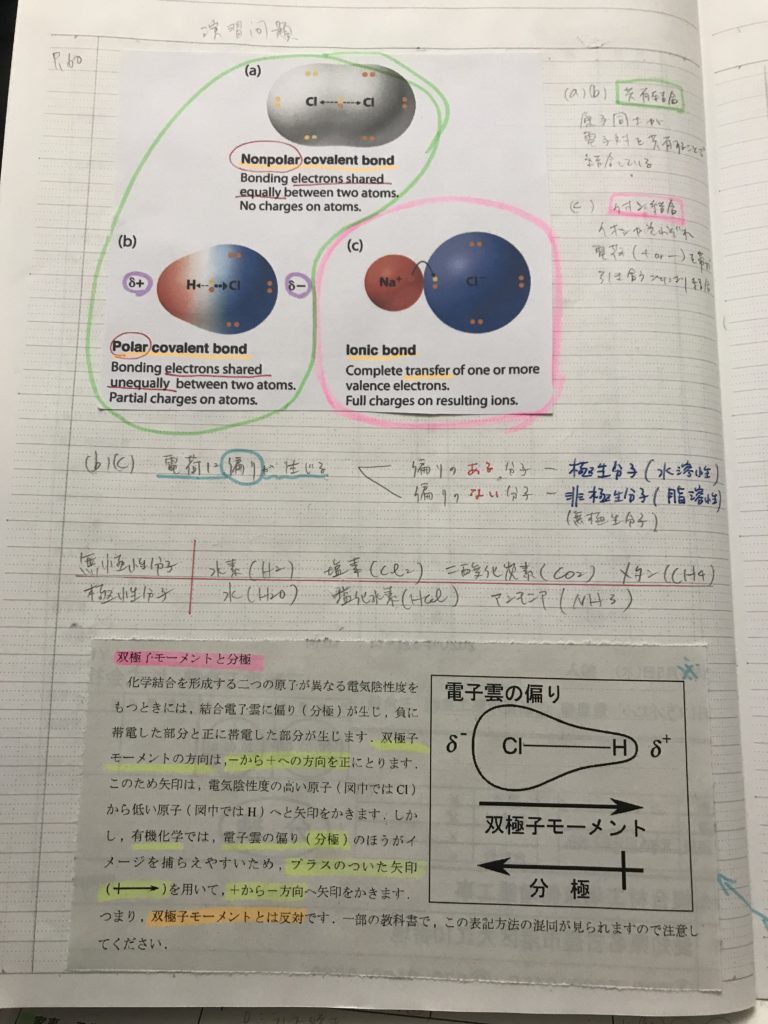 演習問題
P.60
(a)
Cl Cl
Nonpolar covalent bond
Bonding electrons shared
equally between two atoms.
No charges on atoms.
(b)
δ+ H Cl δ−
Polar covalent bond
Bonding electrons shared
unequally between two atoms.
Partial charges on atoms.
(c)
Na+ Cl−
Ionic bond
Complete transfer of one or more
valence electrons.
Full charges on resulting ions.
(a)(b) 共有結合
原子同士が
電子対を共有することで
結合している
(c) イオン結合
イオンがそれぞれ
電荷(+ or −)を
引き合う 結合
(b)(c) 電荷に偏りが生じる
偏りのある分子 − 極生分子(水溶性)
偏りのない分子 − 非極生分子(脂溶性)
(無極生分子)
無極性分子 水素(H2) 塩素(Cl2) 二酸化炭素(CO2) メタン(CH4)
極性分子 水(H2O) 塩化水素(HCl) アンモニア(NH3)
双極子モーメントと分極
化学結合を形成する二つの原子が異なる電気陰性度を
もつときには，結合電子雲に偏り（分極）が生じ，負に
帯電した部分と正に帯電した部分が生じます．双極子
モーメントの方向は，−から＋への方向を正にとります．
このため矢印は，電気陰性度の高い原子（図中では Cl）
から低い原子（図中では H）へと矢印をかきます．しか
し，有機化学では，電子雲の偏り（分極）のほうがイ
メージを捕らえやすいため，プラスのついた矢印
（ ）を用いて，＋から−方向へ矢印をかきます．
つまり，双極子モーメントとは反対です．一部の教科書で，この表記方法の混同が見られますので注意し
てください．
電子雲の偏り
δ− Cl H δ+
双極子モーメント
分極